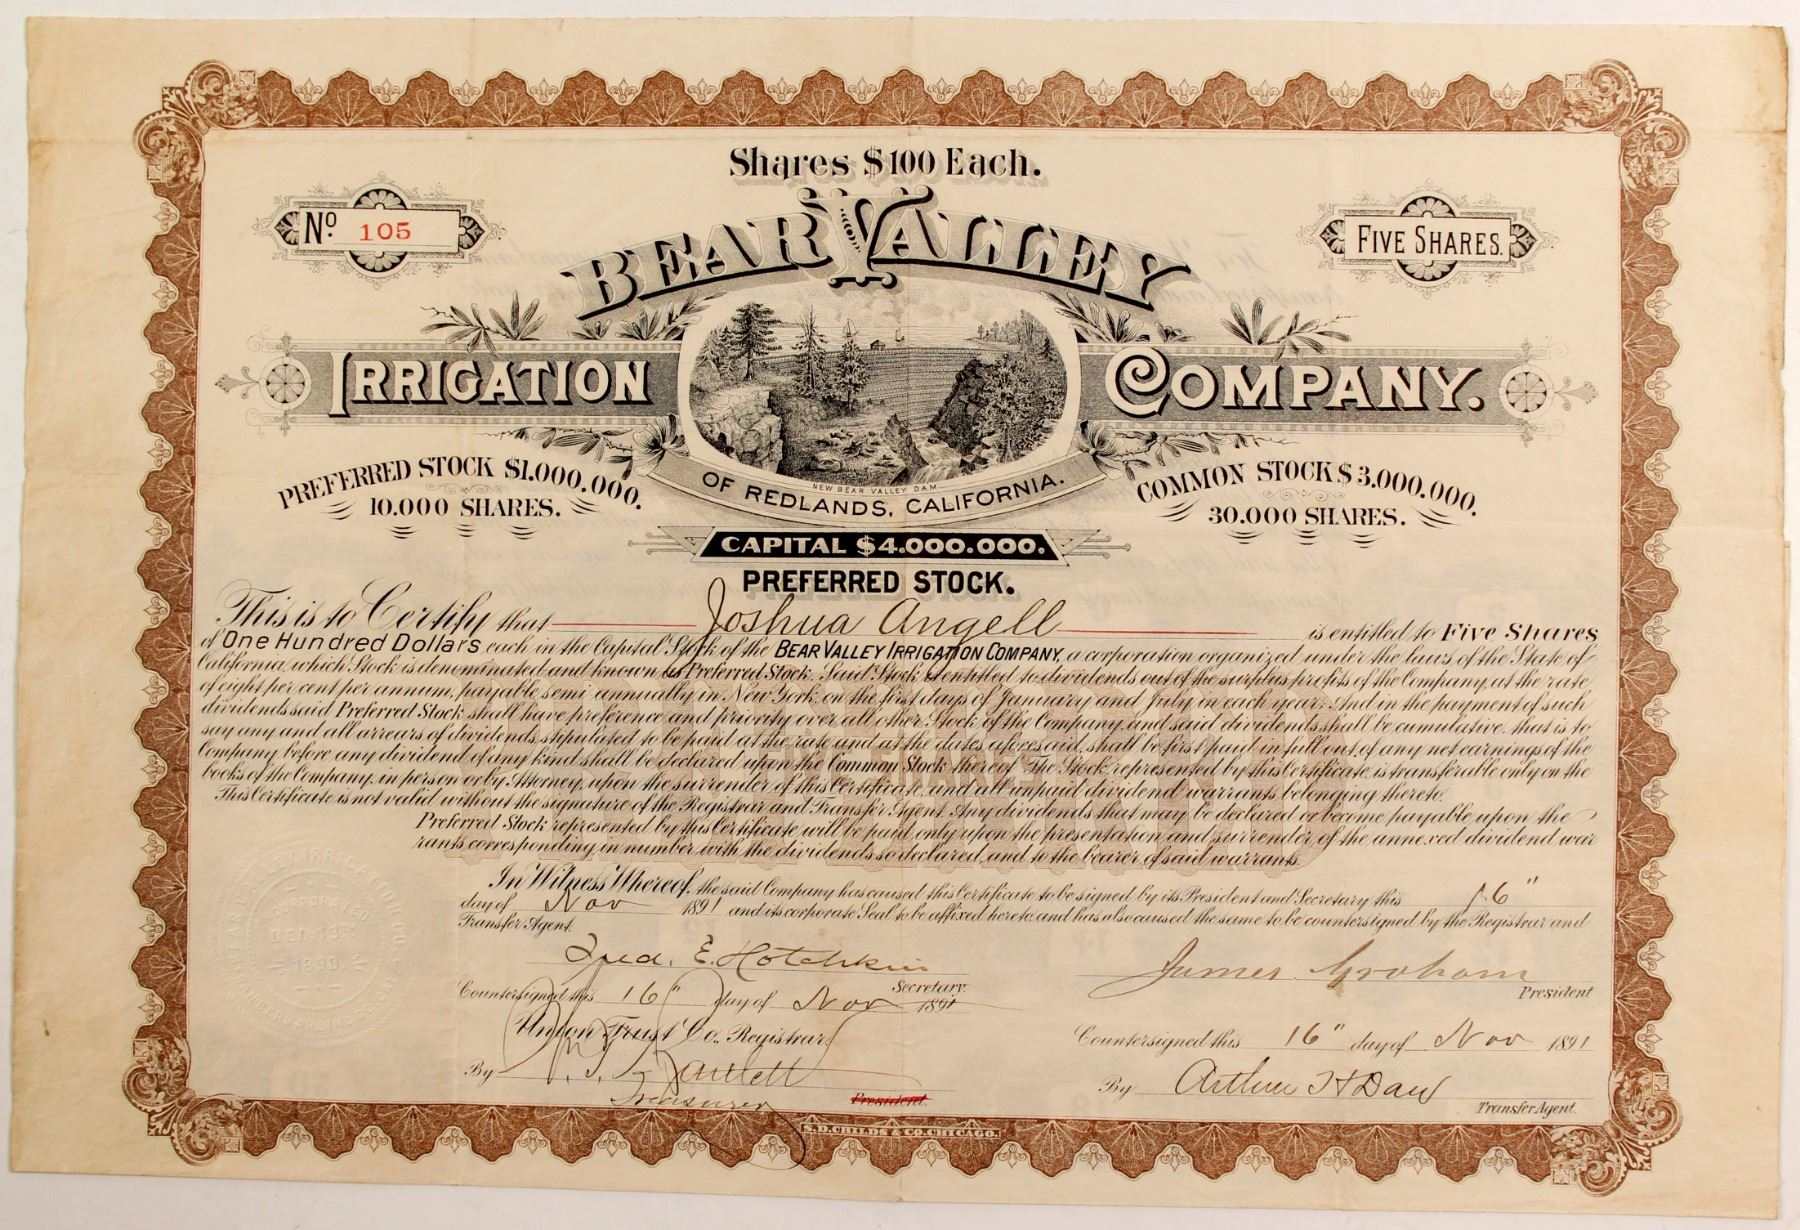 Shares $100 Each.
No. 105
FIVE SHARES.
BEAR VALLEY
IRRIGATION COMPANY.
NEW BEAR VALLEY DAM
OF REDLANDS, CALIFORNIA.
PREFERRED STOCK $1.000.000.
10.000 SHARES.
COMMON STOCK $3.000.000.
30.000 SHARES.
CAPITAL $4.000.000.
PREFERRED STOCK.
This is to Certify that Joshua Angell is entitled to Five Shares
of One Hundred Dollars each in the Capital Stock of the BEAR VALLEY IRRIGATION COMPANY, a corporation organized under the laws of the State of
California, which Stock is denominated and known as Preferred Stock. Said Stock is entitled to dividends out of the surplus profits of the Company, at the rate
of eight per cent per annum, payable semi annually in New York, on the first days of January and July in each year. And in the payment of such
dividends said Preferred Stock shall have preference and priority over all other Stock of the Company, and said dividends shall be cumulative, that is to
say any and all arrears of dividends, stipulated to be paid at the rate and at the dates aforesaid, shall be first paid in full out of any net earnings of the
Company before any dividend of any kind shall be declared upon the Common Stock thereof. The Stock, represented by this Certificate, is transferable only on the
books of the Company, in person or by Attorney, upon the surrender of this Certificate, and all unpaid dividend warrants belonging thereto.
This Certificate is not valid without the signature of the Registrar and Transfer Agent. Any dividends that may be declared or become payable upon the
Preferred Stock represented by this Certificate will be paid only upon the presentation and surrender of the annexed dividend war
rants corresponding in number with the dividends so declared, and to the bearer of said warrants.
In Witness Whereof, the said Company has caused this Certificate to be signed by its President and Secretary this 16"
day of Nov 1891 and its corporate Seal to be affixed hereto, and has also caused the same to be countersigned by the Registrar and
Transfer Agent.
Fred. E. Hotchkin
Secretary.
James Graham
President
Countersigned this 16" day of Nov 1891
Union Trust Co., Registrar
By
Treasurer
President.
Countersigned this 16" day of Nov 1891
By Arthur H Daw
Transfer Agent.
BEAR VALLEY IRRIGATION CO.
INCORPORATED
DEC. 1890
S.D. CHILDS & CO. CHICAGO.